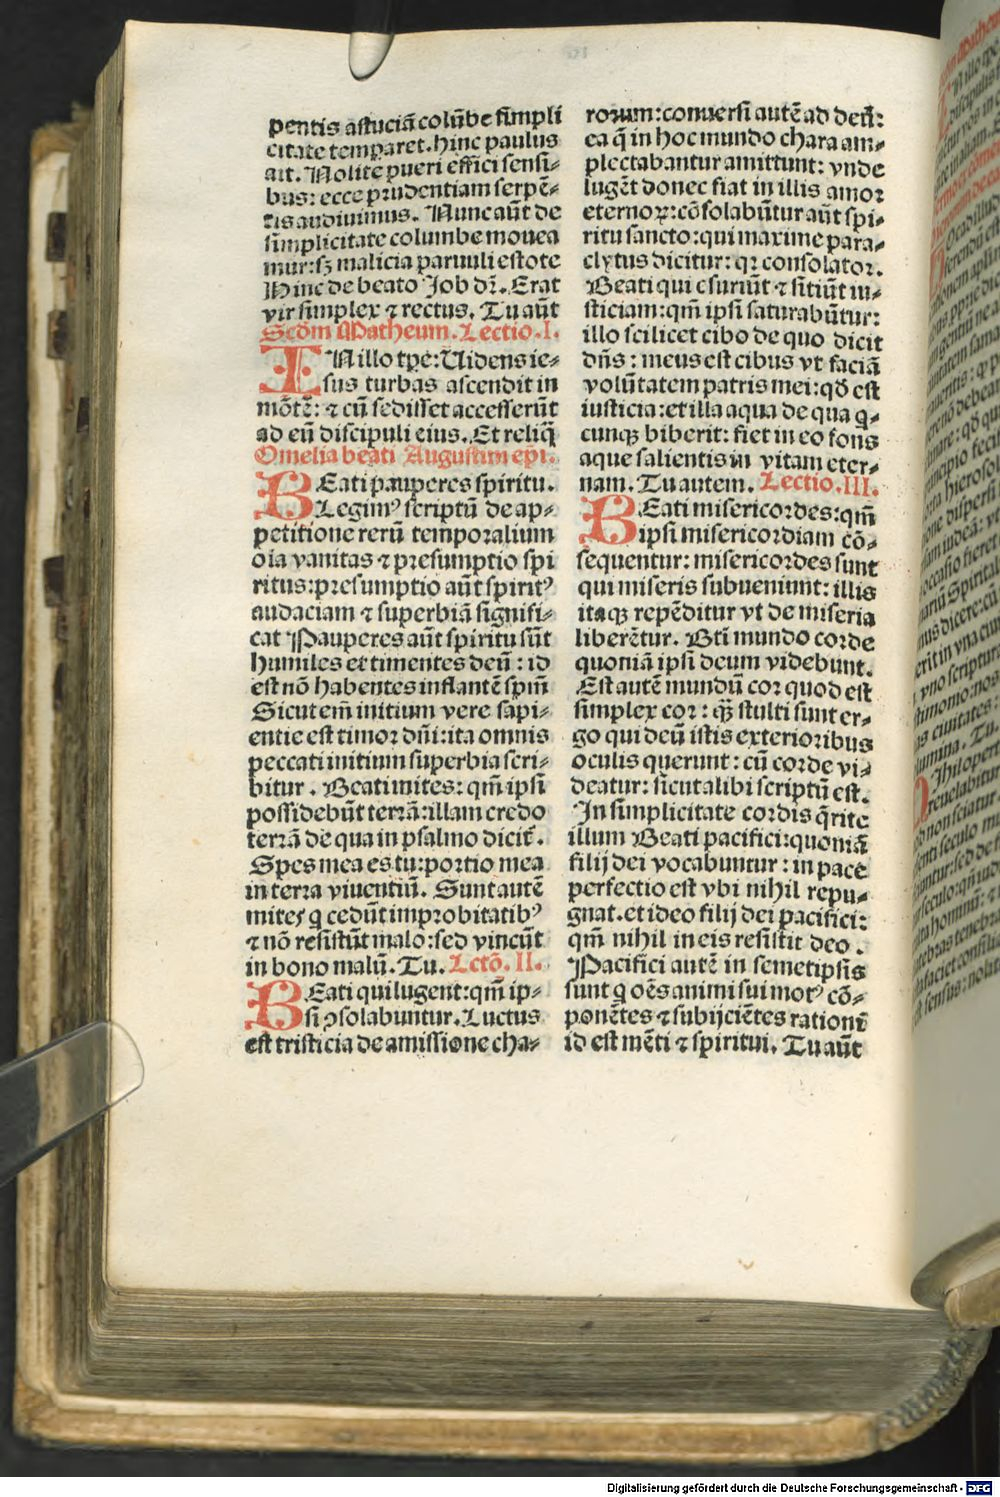 pentis astuciā colūbe simpli
citate temperaret. hinc paulus
ait. Nolite pueri effici sensi⸗
bus: ecce prudentiam serpē⸗
tis audiuimus. Nunc aūt de
simplicitate columbe mouea
mur: sꝫ malicia paruuli estote
Hinc de beato Job dr̄. Erat
vir simplex ⁊ rectus. Tu aūt
Scd̄m Matheum. Lectio. I.
IN illo tp̄e: Uidens ie⸗
sus turbas ascendit in
mōtē: ⁊ cū sedisset accesserūt
ad eū discipuli eius. Et reliq̄
Omelia beati Augustini ep̄i.
BEati pauperes spiritu.
Legimꝰ scriptū de ap⸗
petitione rerū temporalium
oīa vanitas ⁊ presumptio spi
ritus: presumptio aūt spiritꝰ
audaciam ⁊ superbiā signifi⸗
cat Pauperes aūt spiritu sūt
humiles et timentes deū: id
est nō habentes inflantē spm̄
Sicut em̄ initium vere sapi⸗
entie est timor dn̄i: ita omnis
peccati initium superbia scri⸗
bitur. Beati mites: qm̄ ipsi
possidebūt terrā: illam credo
terrā de qua in psalmo dicit̄.
Spes mea es tu: portio mea
in terra viuentiū. Sunt autē
mites q̄ cedūt improbitatibꝰ
⁊ nō resistūt malo: sed vincūt
in bono malū. Tu. Lctō. II.
BEati qui lugent: qm̄ ip⸗
si ꝯsolabuntur. Luctus
est tristicia de amissione cha⸗
rorum: conuersi autē ad deū:
ea q̄ in hoc mundo chara am⸗
plectabantur amittunt: vnde
lugēt donec fiat in illis amor
eternoꝝ: cōsolabūtur aūt spi⸗
ritu sancto: qui maxime para⸗
clytus dicitur: qꝛ consolator.
Beati qui esuriūt ⁊ sitiūt iu⸗
sticiam: qm̄ ipsi saturabūtur:
illo scilicet cibo de quo dicit
dn̄s: meus est cibus vt faciā
volūtatem patris mei: qd̄ est
iusticia: et illa aqua de qua q̄⸗
cunqꝫ biberit: fiet in eo fons
aque salientis in vitam eter⸗
nam. Tu autem. Lectio. III.
BEati misericordes: qm̄
ipsi misericordiam cō⸗
sequentur: misericordes sunt
qui miseris subueniunt: illis
itaqꝫ repēditur vt de miseria
liberētur. Bt̄i mundo corde
quoniā ipsi deum videbunt.
Est autē mundū cor quod est
simplex cor: qꝫ̄ stulti sunt er⸗
go qui deū istis exterioribus
oculis querunt: cū corde vi⸗
deatur: sicut alibi scriptū est.
In simplicitate cordis q̄rite
illum Beati pacifici: quoniā
filij dei vocabuntur: in pace
perfectio est vbi nihil repu⸗
gnat. et ideo filij dei pacifici:
qm̄ nihil in eis resistit deo.
Pacifici autē in semetipsis
sunt q̄ oēs animi sui motꝰ cō⸗
ponētes ⁊ subijciētes rationi
id est mēti ⁊ spiritui. Tu aūt
Digitalisierung gefördert durch die Deutsche Forschungsgemeinschaft - DFG